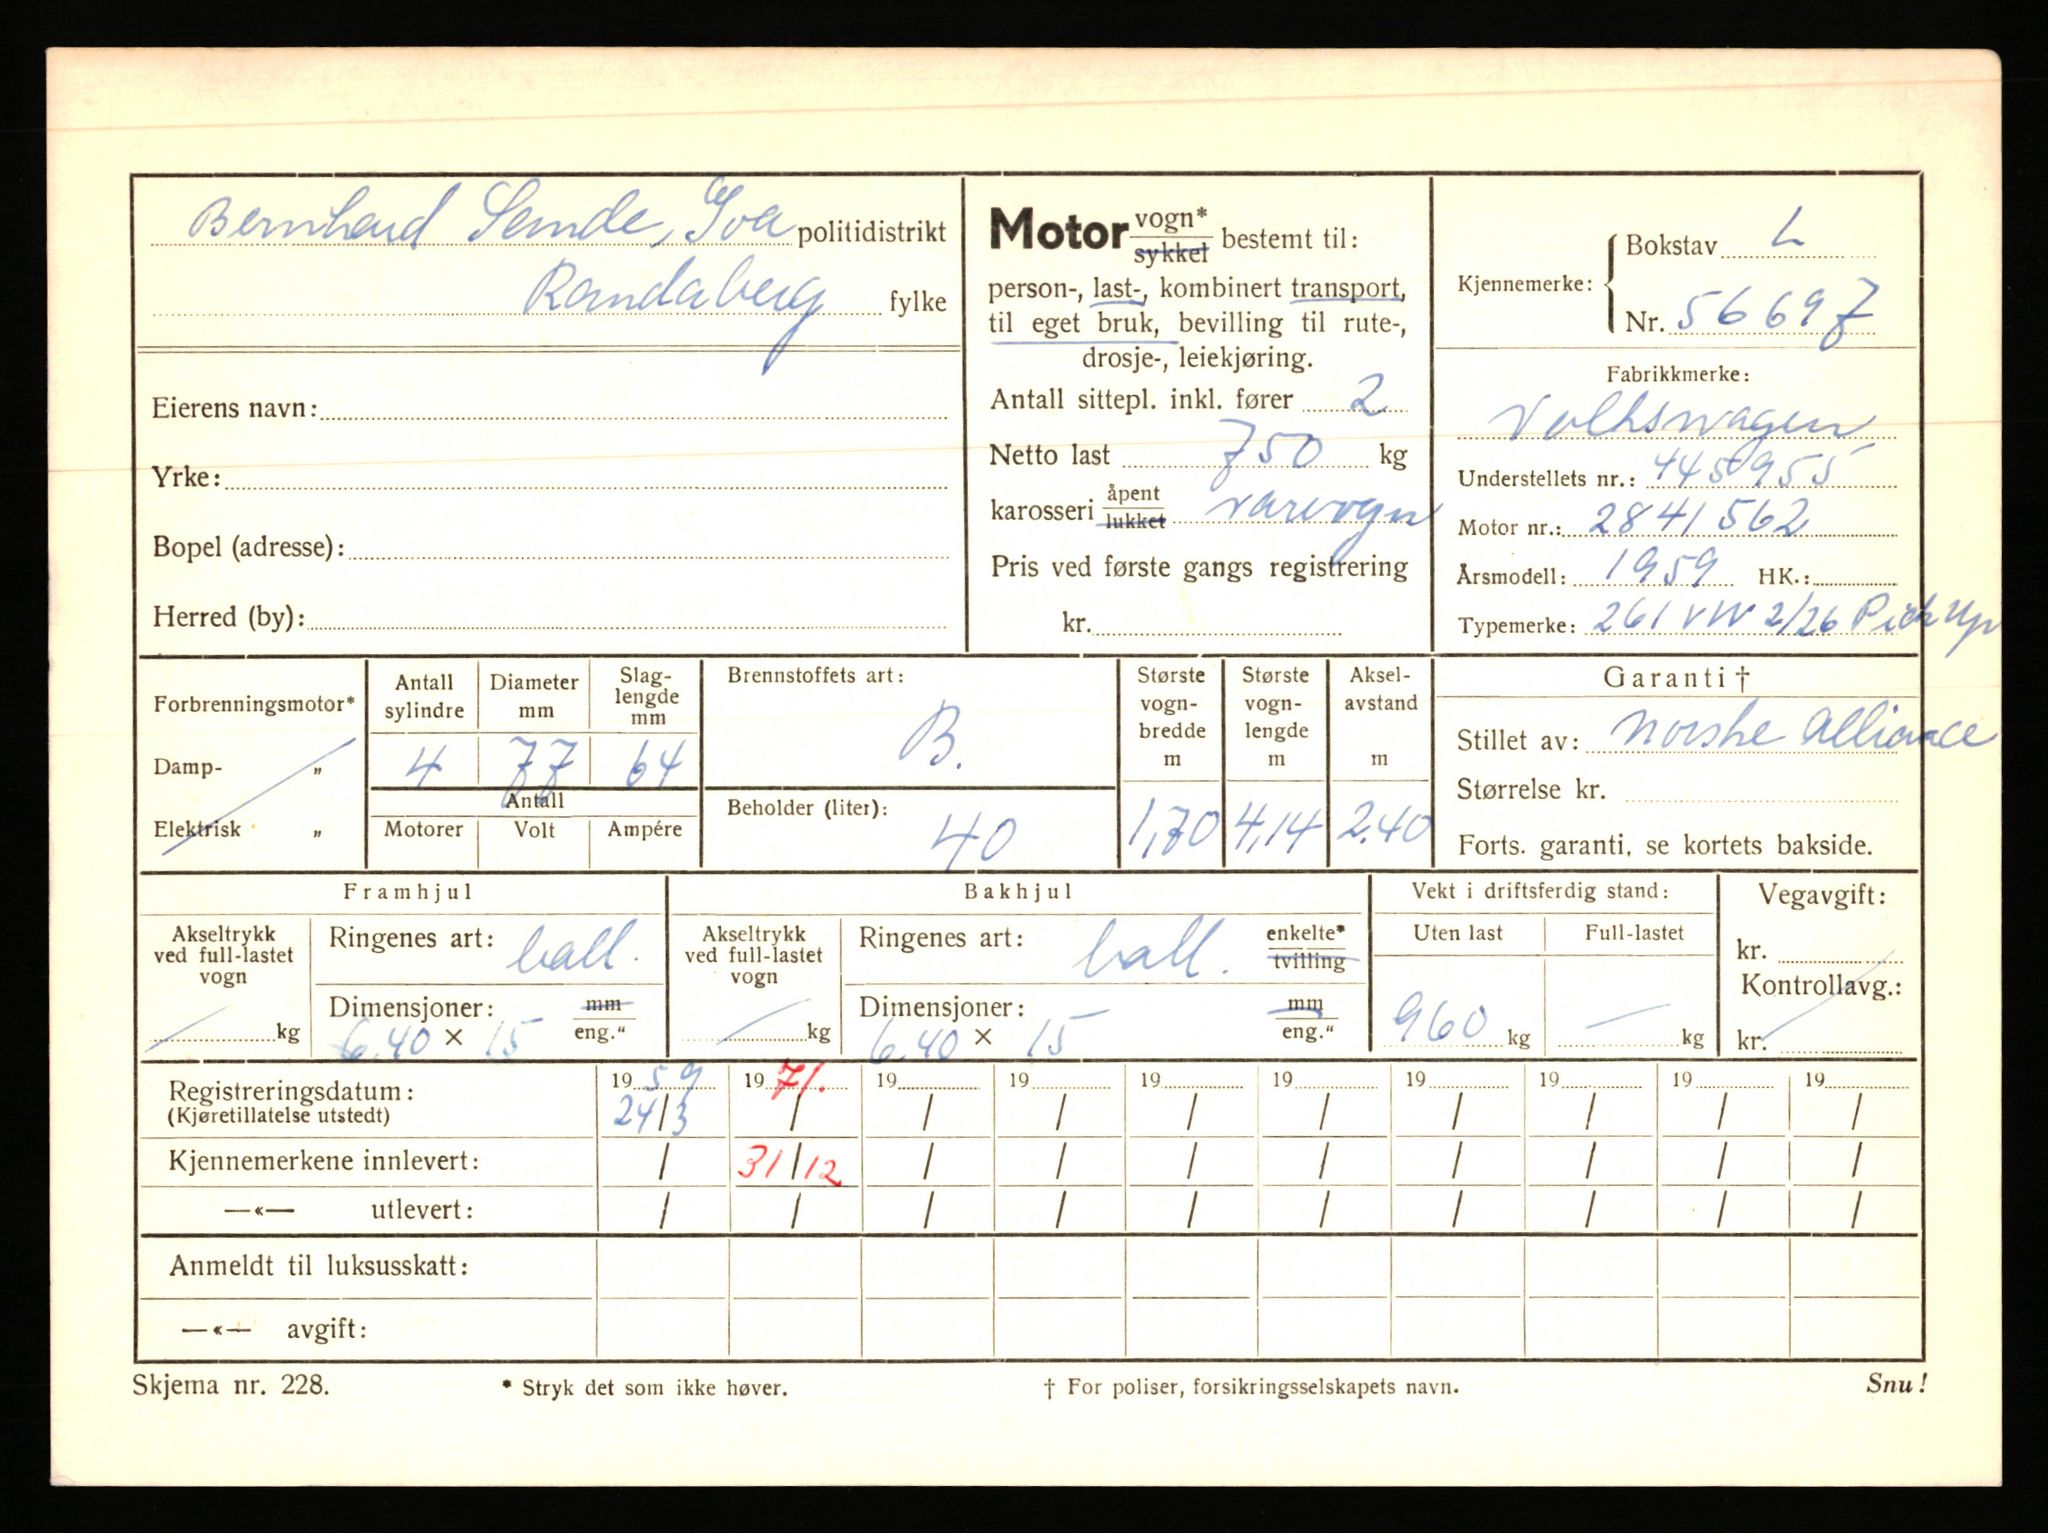 Bernhard Sande, Goa politidistrikt
Randaberg fylke
Eierens navn:
Yrke:
Bopel (adresse):
Herred (by):
Motor vogn* sykkel bestemt til:
person-, last-, kombinert transport,
til eget bruk, bevilling til rute-,
drosje-, leiekjøring.
Antall sittepl. inkl. fører 2
Netto last 750 kg
karosseri åpent lukket varevogn
Pris ved første gangs registrering
kr.
Kjennemerke: Bokstav L
Nr. 56697
Fabrikkmerke:
Volkswagen
Understellets nr.: 445955
Motor nr.: 2841562
Årsmodell: 1959 HK.:
Typemerke: 261 VW 2/26 Pick Up
Forbrenningsmotor*
Damp- „
Elektrisk „
Antall sylindre
Diameter mm
Slag-lengde mm
4 77 64
Antall
Motorer Volt Ampére
Brennstoffets art:
B.
Beholder (liter):
40
Største vogn-bredde m
1,70
Største vogn-lengde m
4,14
Aksel-avstand m
2.40
Garanti †
Stillet av: Norske Alliance
Størrelse kr.
Forts. garanti, se kortets bakside.
Framhjul
Akseltrykk ved full-lastet vogn
kg
Ringenes art: ball.
Dimensjoner: mm
6.40 × 15 eng."
Bakhjul
Akseltrykk ved full-lastet vogn
kg
Ringenes art: ball. enkelte* tvilling
Dimensjoner: mm
6.40 × 15 eng."
Vekt i driftsferdig stand:
Uten last Full-lastet
960 kg — kg
Vegavgift:
kr.
Kontrollavg.:
kr.
Registreringsdatum: 1959 1971. 19 19 19 19 19 19 19 19
(Kjøretillatelse utstedt) 24/3 / / / / / / / / /
Kjennemerkene innlevert: / 31/12 / / / / / / / /
—«— utlevert: / / / / / / / / / /
Anmeldt til luksusskatt:
—«— avgift:
Skjema nr. 228. * Stryk det som ikke høver. † For poliser, forsikringsselskapets navn. Snu!